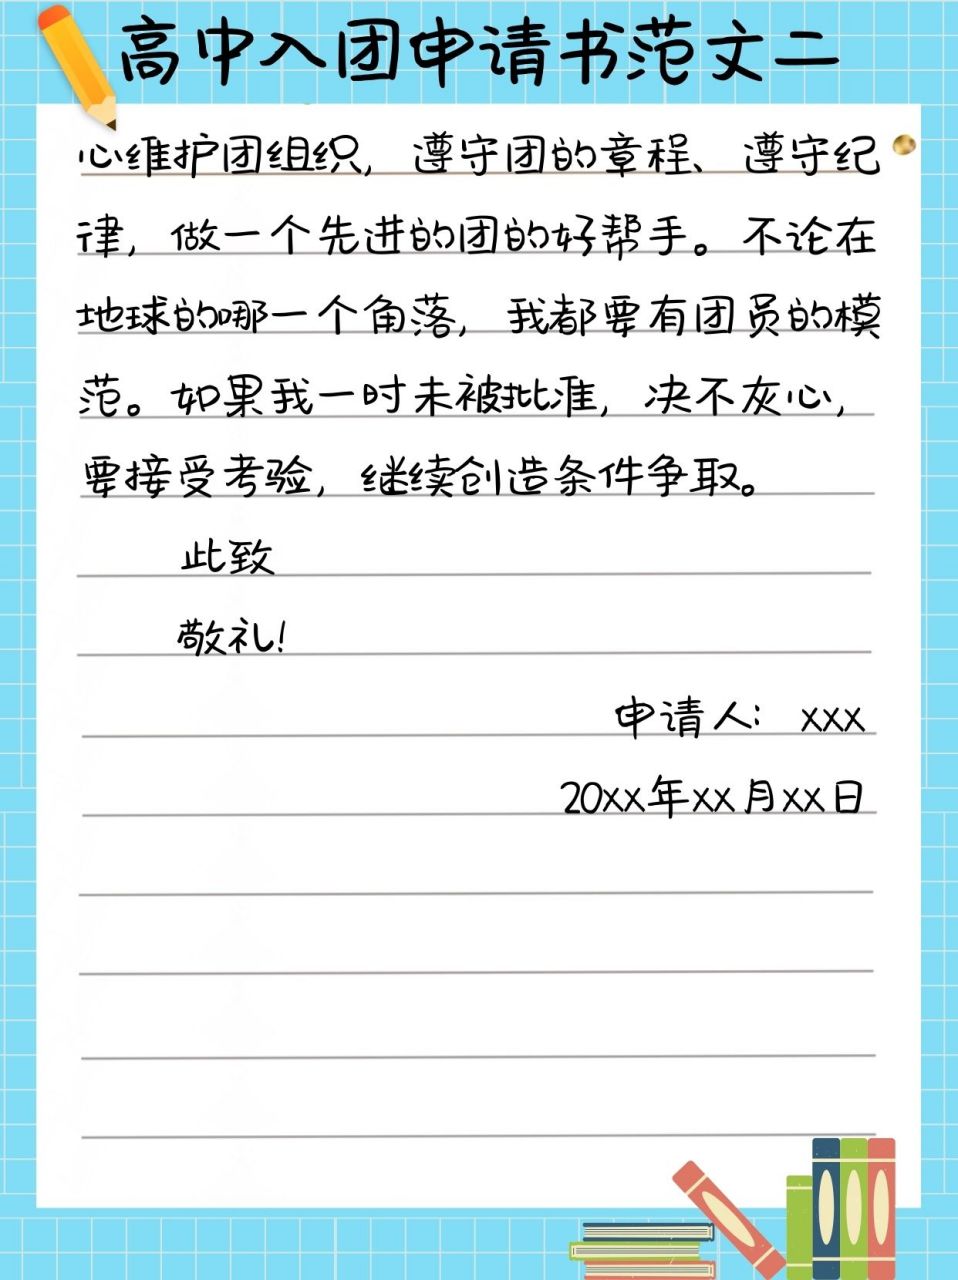 高中入团申请书范文二
心维护团组织，遵守团的章程、遵守纪
律，做一个先进的团的好帮手。不论在
地球的哪一个角落，我都要有团员的模
范。如果我一时未被批准，决不灰心，
要接受考验，继续创造条件争取。
此致
敬礼！
申请人：xxx
20xx年xx月xx日